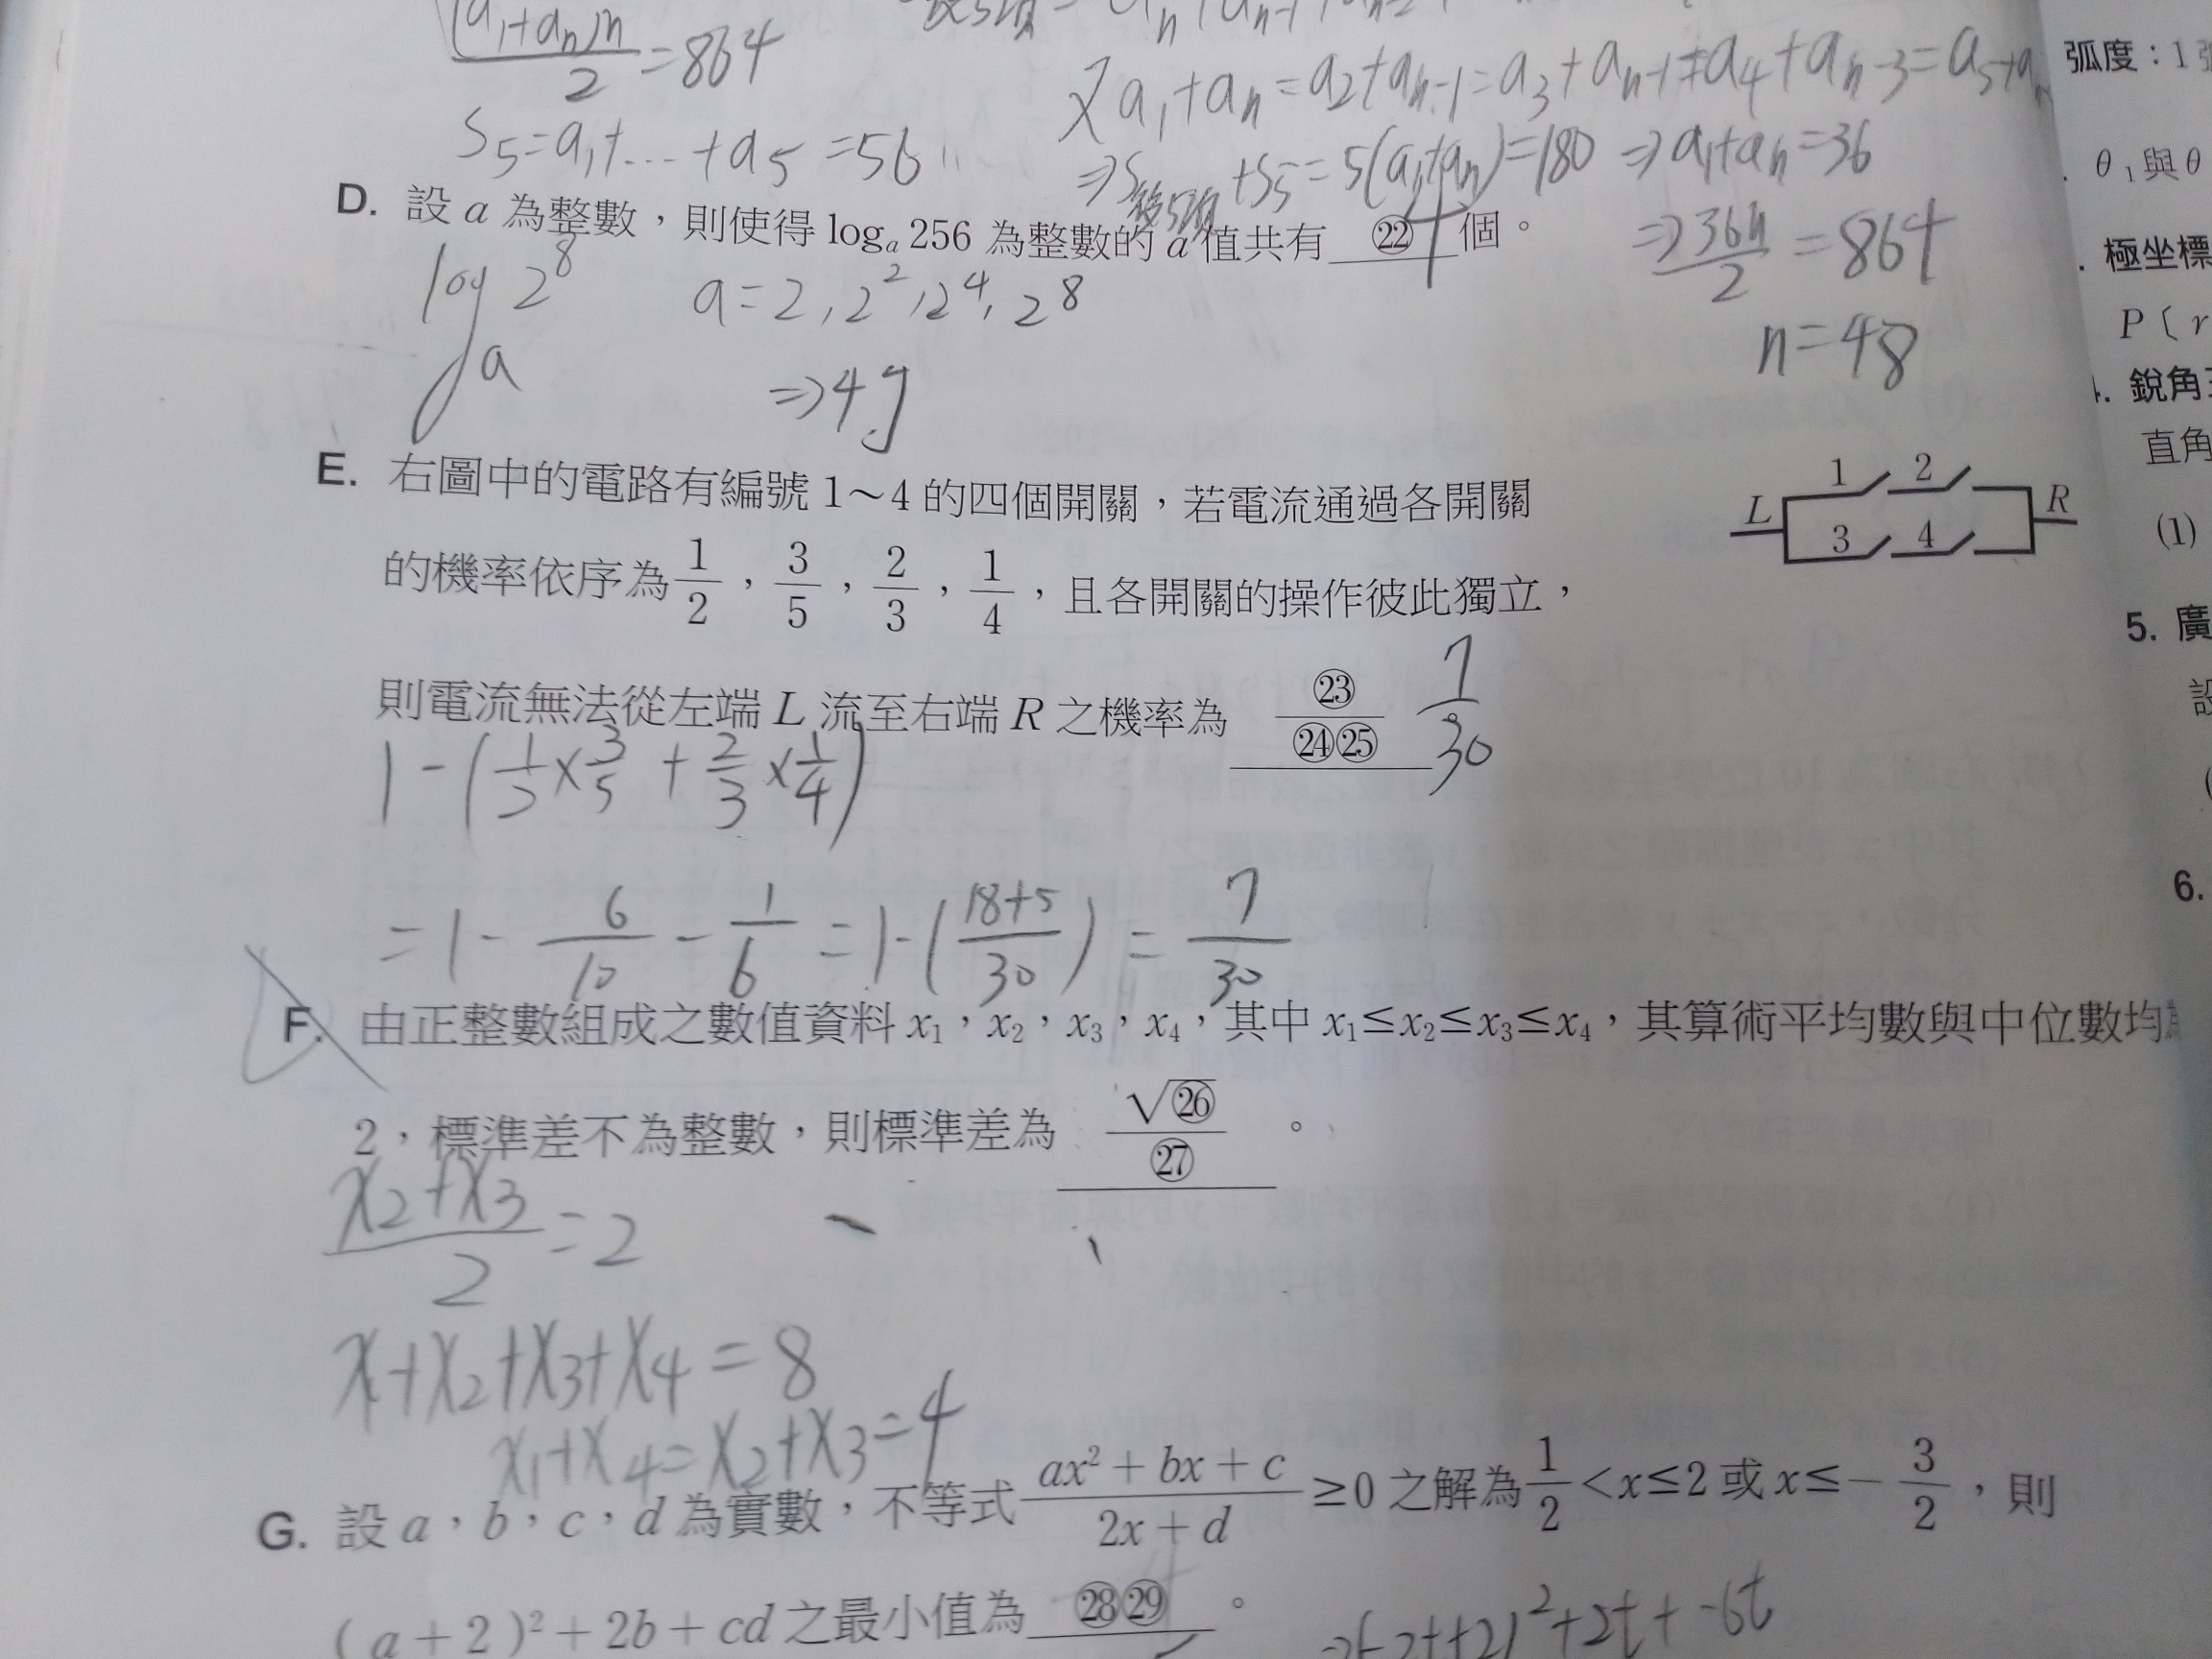 (a₁+aₙ)n/2=864
S₅=a₁+...+a₅=56
又a₁+aₙ=a₂+aₙ₋₁=a₃+aₙ₋₁=a₄+aₙ₋₃=a₅+a
⇒S後5項+S₅=5(a₁+aₙ)=180⇒a₁+aₙ=36
⇒36n/2=864
n=48
D. 設 a 為整數,則使得 logₐ 256 為整數的 a 值共有 ㉒ 個。
4
logₐ 2⁸
a=2, 2², 2⁴, 2⁸
⇒4
E. 右圖中的電路有編號 1~4 的四個開關,若電流通過各開關
的機率依序為 1/2, 3/5, 2/3, 1/4,且各開關的操作彼此獨立,
則電流無法從左端 L 流至右端 R 之機率為 ㉓/㉔㉕
7/30
L 1 2 3 4 R
1-(1/2×3/5+2/3×1/4)
=1-6/10-1/6=1-(18+5/30)=7/30
F. 由正整數組成之數值資料 x₁,x₂,x₃,x₄,其中 x₁≤x₂≤x₃≤x₄,其算術平均數與中位數均
2,標準差不為整數,則標準差為 √㉖/㉗ 。
x₂+x₃/2=2
x₁+x₂+x₃+x₄=8
x₁+x₄=x₂+x₃=4
G. 設 a,b,c,d 為實數,不等式 ax²+bx+c/2x+d ≥0 之解為 1/2<x≤2 或 x≤-3/2,則
(a+2)²+2b+cd 之最小值為 ㉘㉙ 。
弧度:1
θ₁與θ
極坐標
P〔r
銳角三
直角
(1)
5. 廣
設
6.